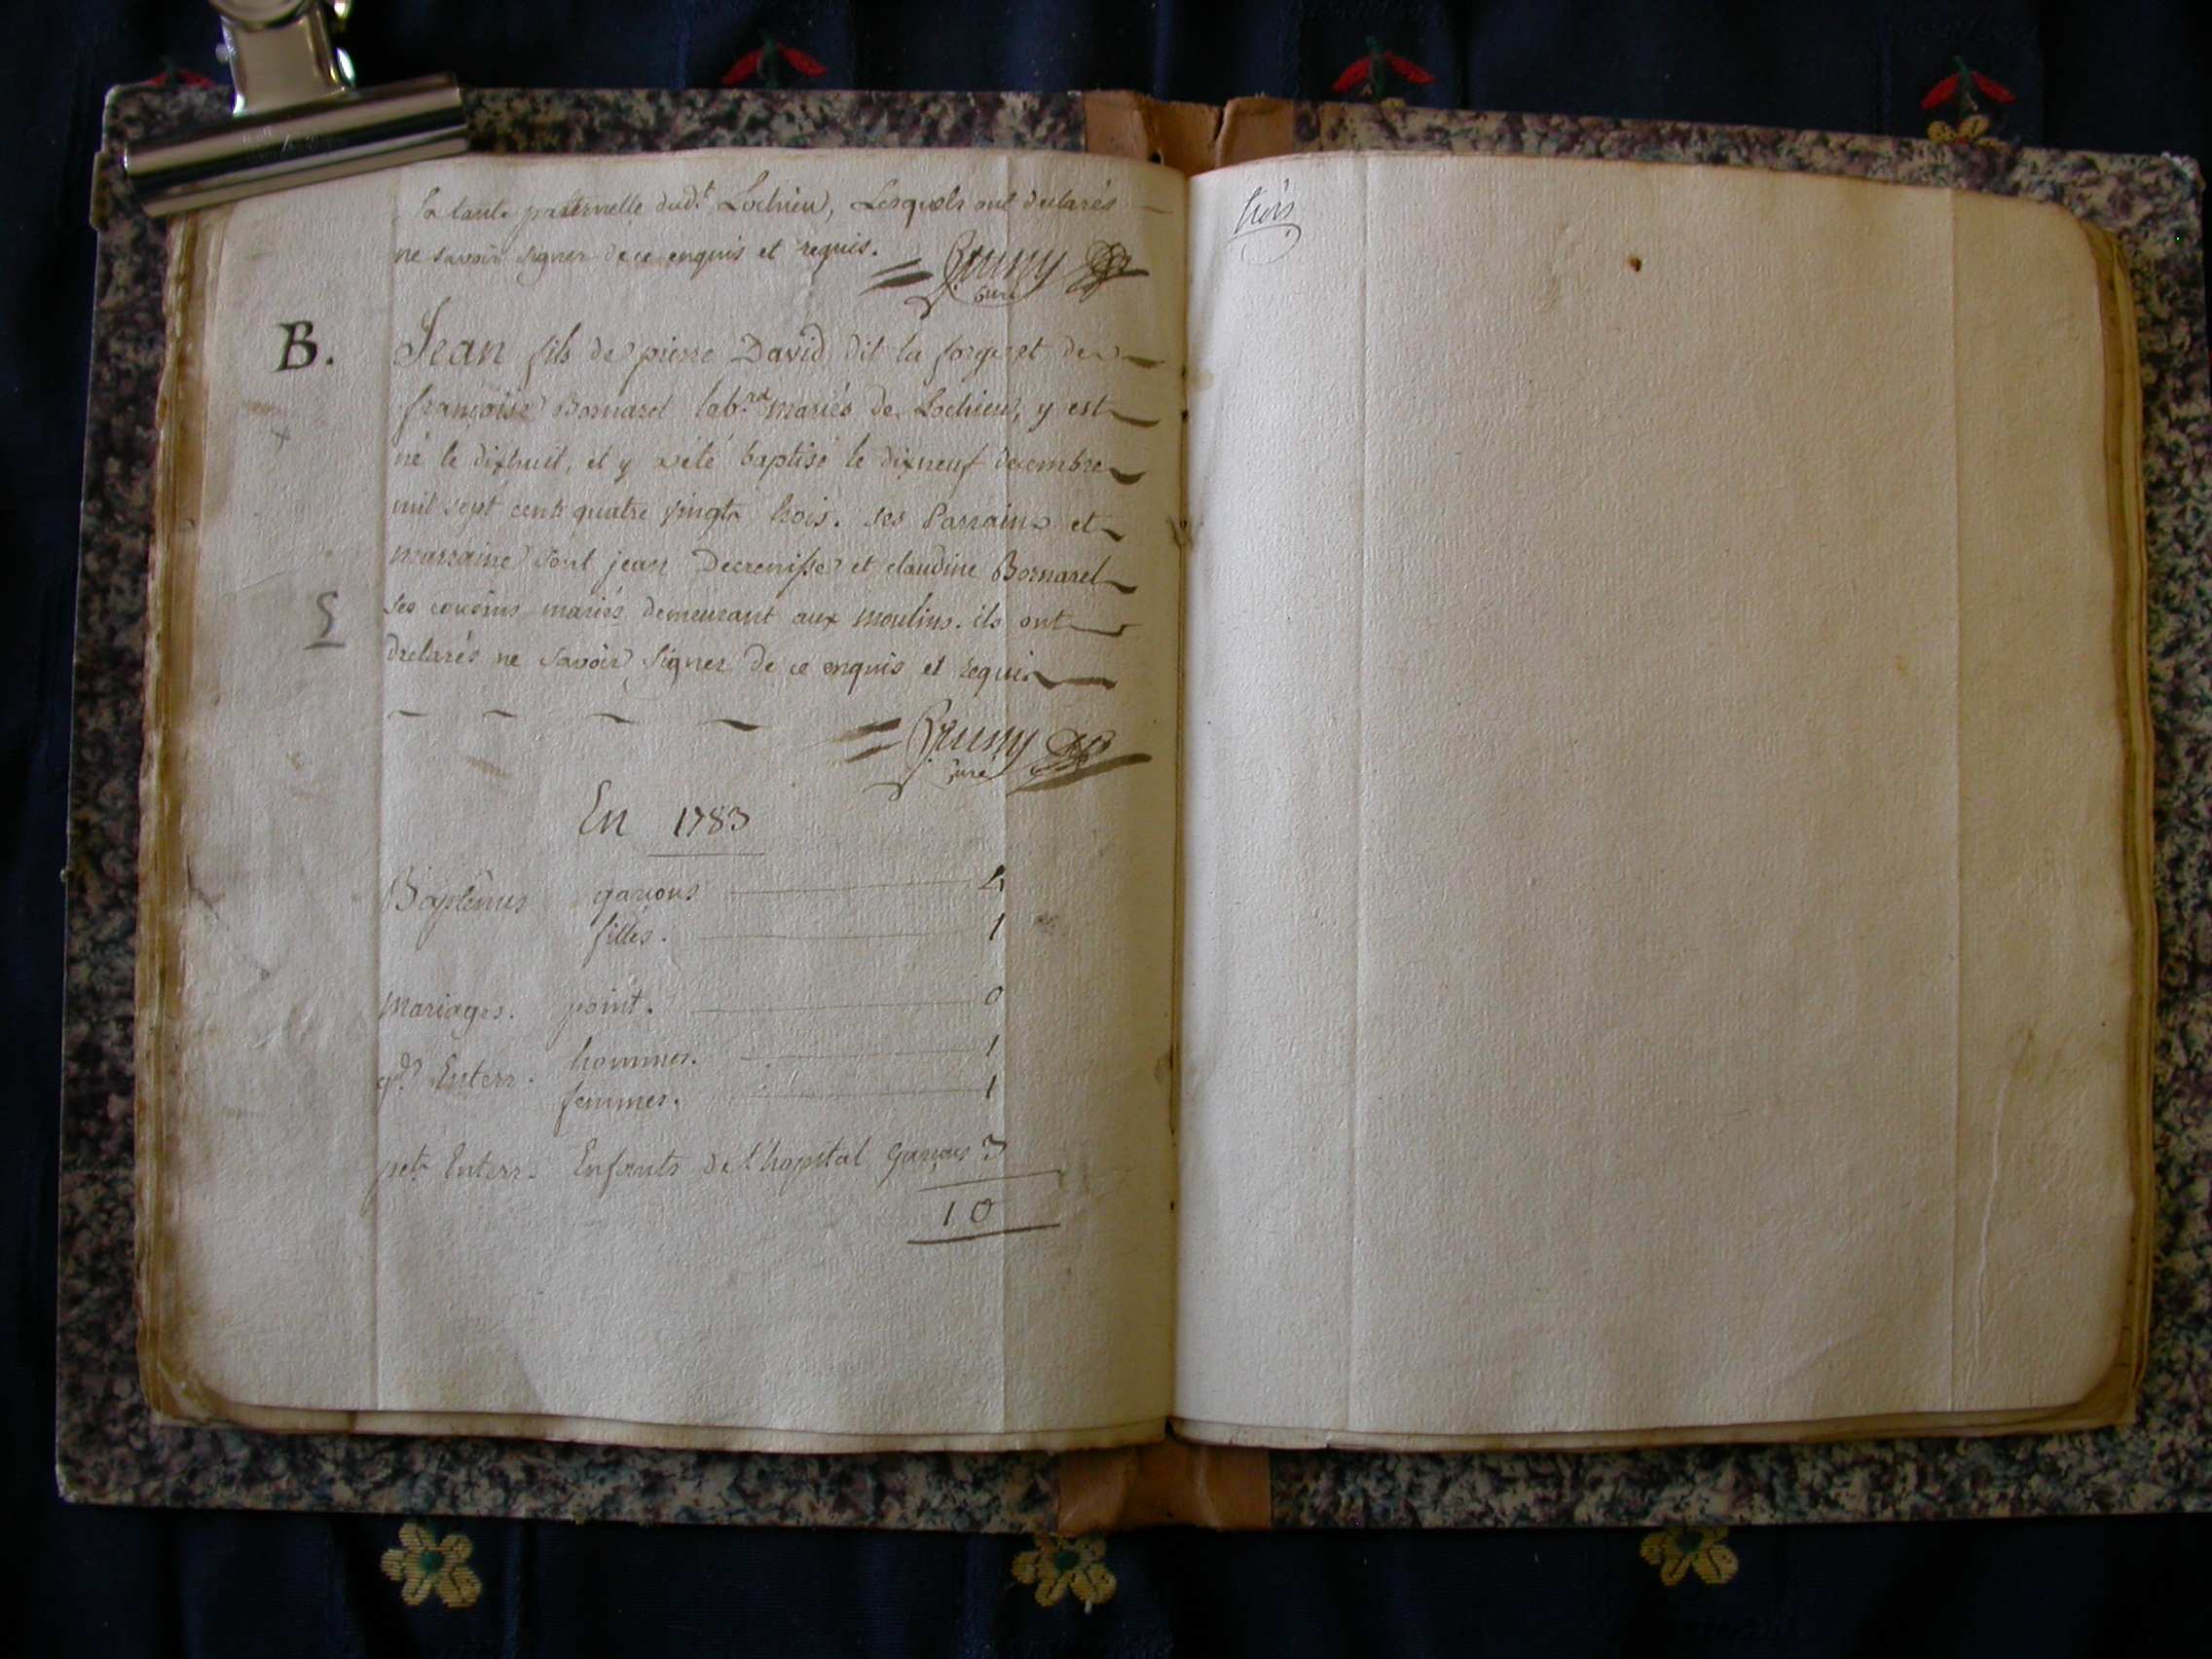 sa tante paternelle dud.t Lochieu, Lesquels ont declarés
ne savoir signer de ce enquis et requis.
curé
B. Jean fils de pierre David dit la forge et de
françoise Bornarel lab.rs mariés de Lochieu, y est
né le dixhuit, et y a été baptisé le dixneuf decembre
mil sept cents quatre vingts trois. ses Parrain et
marraine sont jean Decrenisse et claudine Bornarel
5
ses cousins mariés demeurant aux moulins. ils ont
declarés ne savoir signer de ce enquis et requis
curé
En 1783
Baptêmes garçons 4
filles. 1
Mariages. point. 0
gds Enterr. hommes. 1
femmes. 1
pets Enterr. Enfants de l'hopital garçons 3
10
trois